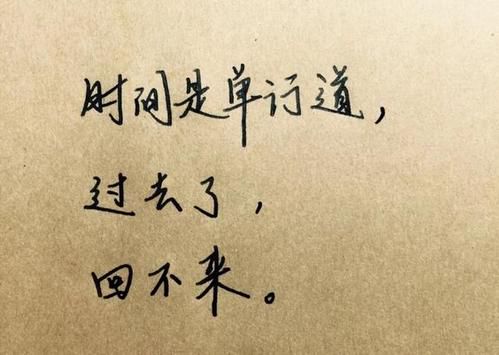 时间是单行道，
过去了，
回不来。